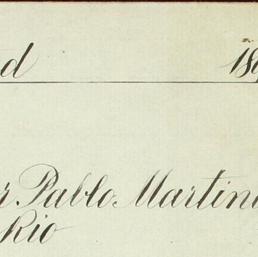 d 18
r Pablo Martin
Rio